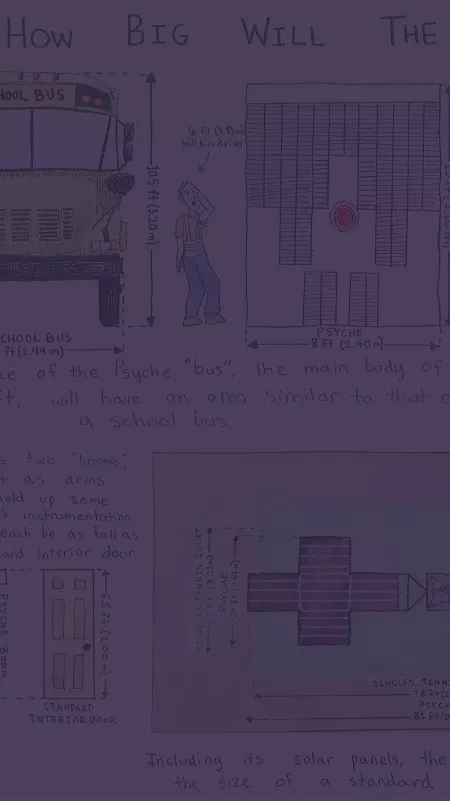 HOW BIG WILL THE
HOOL BUS
6 ft (1.83 m)
tall bus driver
10.5 ft (3.20 m)
CHOOL BUS
ft (2.44 m)
PSYCHE
8 ft (2.40 m)
ce of the Psyche "bus", the main body of
ft, will have an area similar to that o
a school bus.
s two "booms",
t as arms
hold up some
's instrumentation.
each be as tall as
ard interior door.
PSYCHE BOOM
6.5 ft (2.00 m)
STANDARD
INTERIOR DOOR
SINGLES TENNIS COURT
PSYCHE
SINGLES TENN
78 ft (2
PSYC
81 ft (2
Including its solar panels, the
the size of a standard